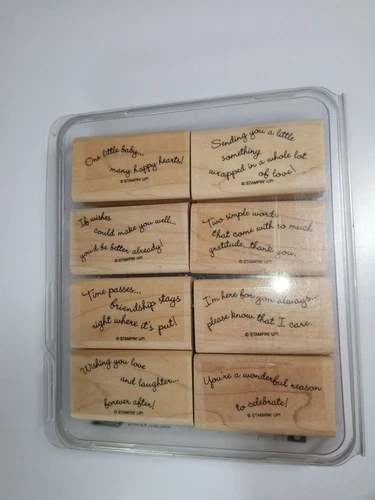 One little baby...
many happy hearts!
© STAMPIN' UP!
Sending you a little
something
wrapped in a whole lot
of love!
© STAMPIN' UP!
If wishes
could make you well...
you'd be better already!
© STAMPIN' UP!
Two simple words
that come with so much
gratitude...thank you.
© STAMPIN' UP!
Time passes...
friendship stays
right where it's put!
© STAMPIN' UP!
I'm here for you always...
please know that I care.
© STAMPIN' UP!
Wishing you love
and laughter...
forever after!
© STAMPIN' UP!
You're a wonderful reason
to celebrate!
© STAMPIN' UP!